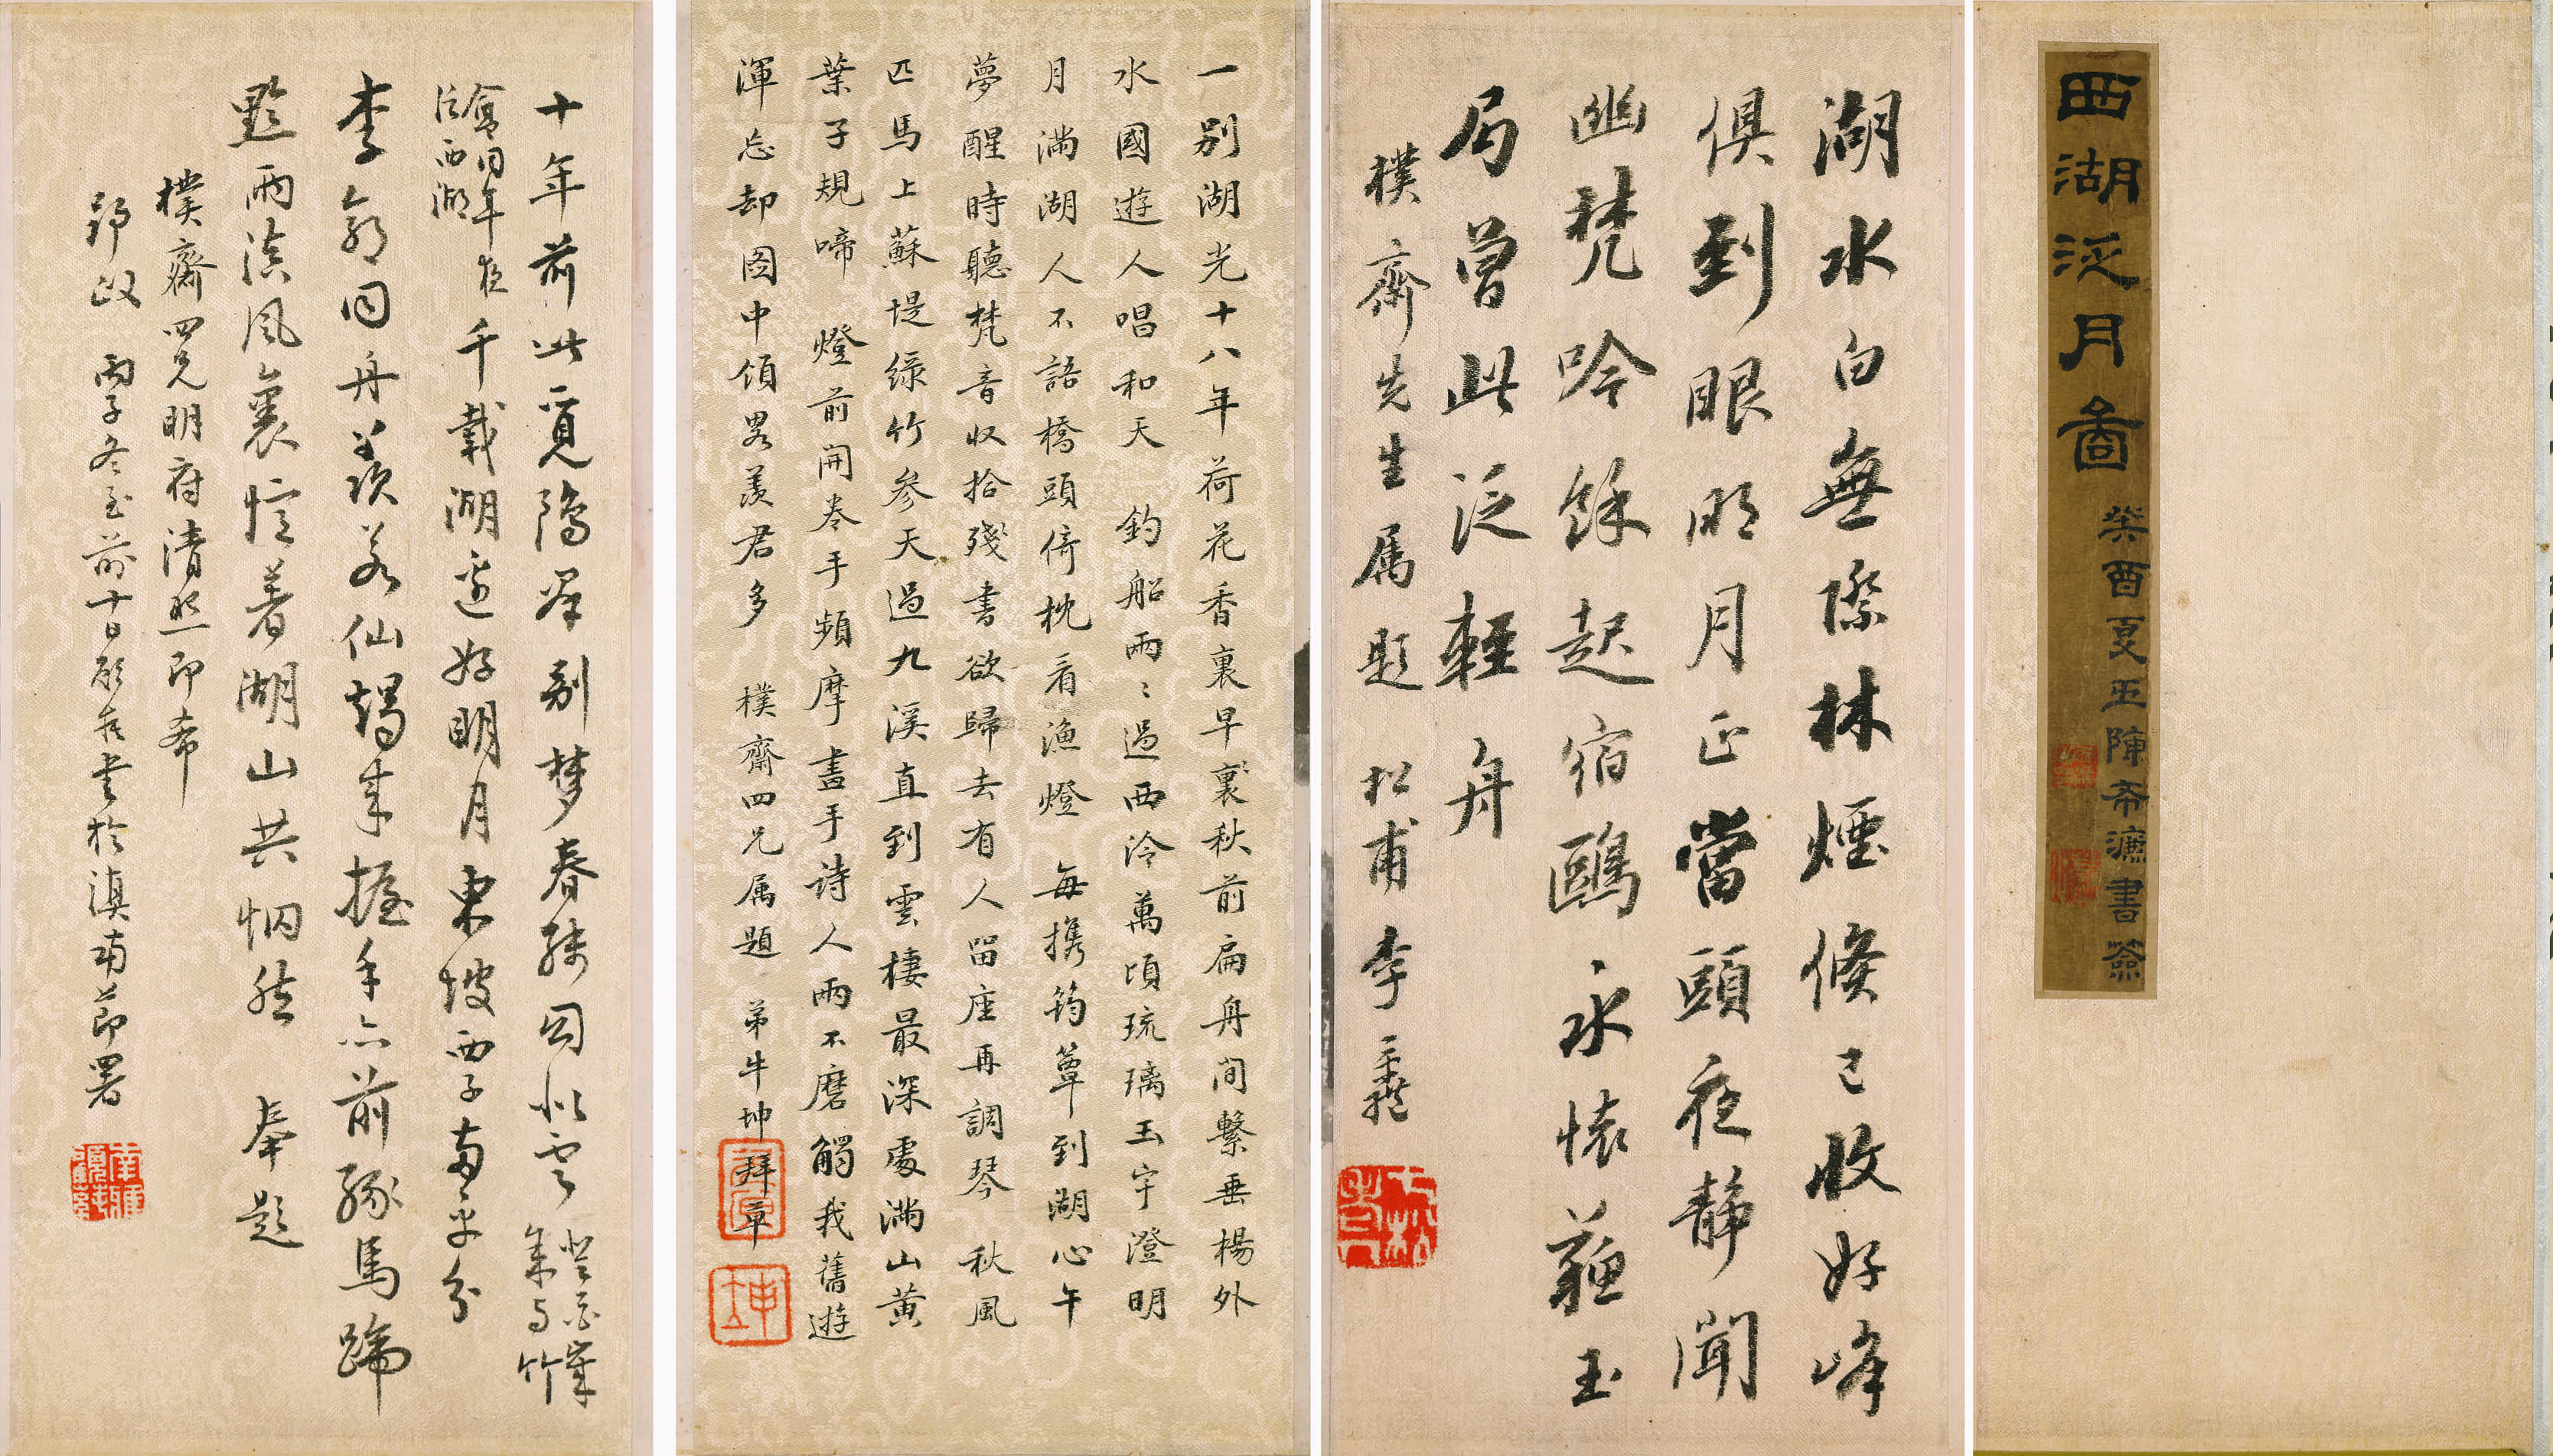 西湖泛月圖
癸酉夏五陳希濂書簽
湖水白無際林煙倏已收好峰
俱到眼明月正當頭夜靜聞
幽梵吟餘起宿鷗永懷蘇玉
局曾此泛輕舟
樸齋先生属題 松甫李
一别湖光十八年荷花香裏早裝秋前扁舟閒繫垂楊外
水國遊人唱和天 釣船兩〻過西泠萬頃琉璃玉宇澄明
月滿湖人不語橋頭倚枕看漁燈 每攜筠簟到湖心午
夢醒時聽梵音收拾殘書欲歸去有人留座再調琴 秋風
匹馬上蘇堤綠竹參天過九溪直到雲棲最深處滿山黃
葉子規啼 燈前開卷手頻摩畫手詩人兩不磨觸我舊遊
渾忘却图中領畧羡君多 樸齋四兄属題 弟牛坤拜草
十年前此覓鴻羣别梦春殘
來与竹
同年夜
泛西湖
千載湖邊好明月東坡西子两平分
李郭同舟羡若仙握手六前緣馬蹄
黔雨滇風裏憶著湖山共惘然 奉題
樸齋四兄明府清照即希
郢政 丙子冬至前十日書於滇南節署